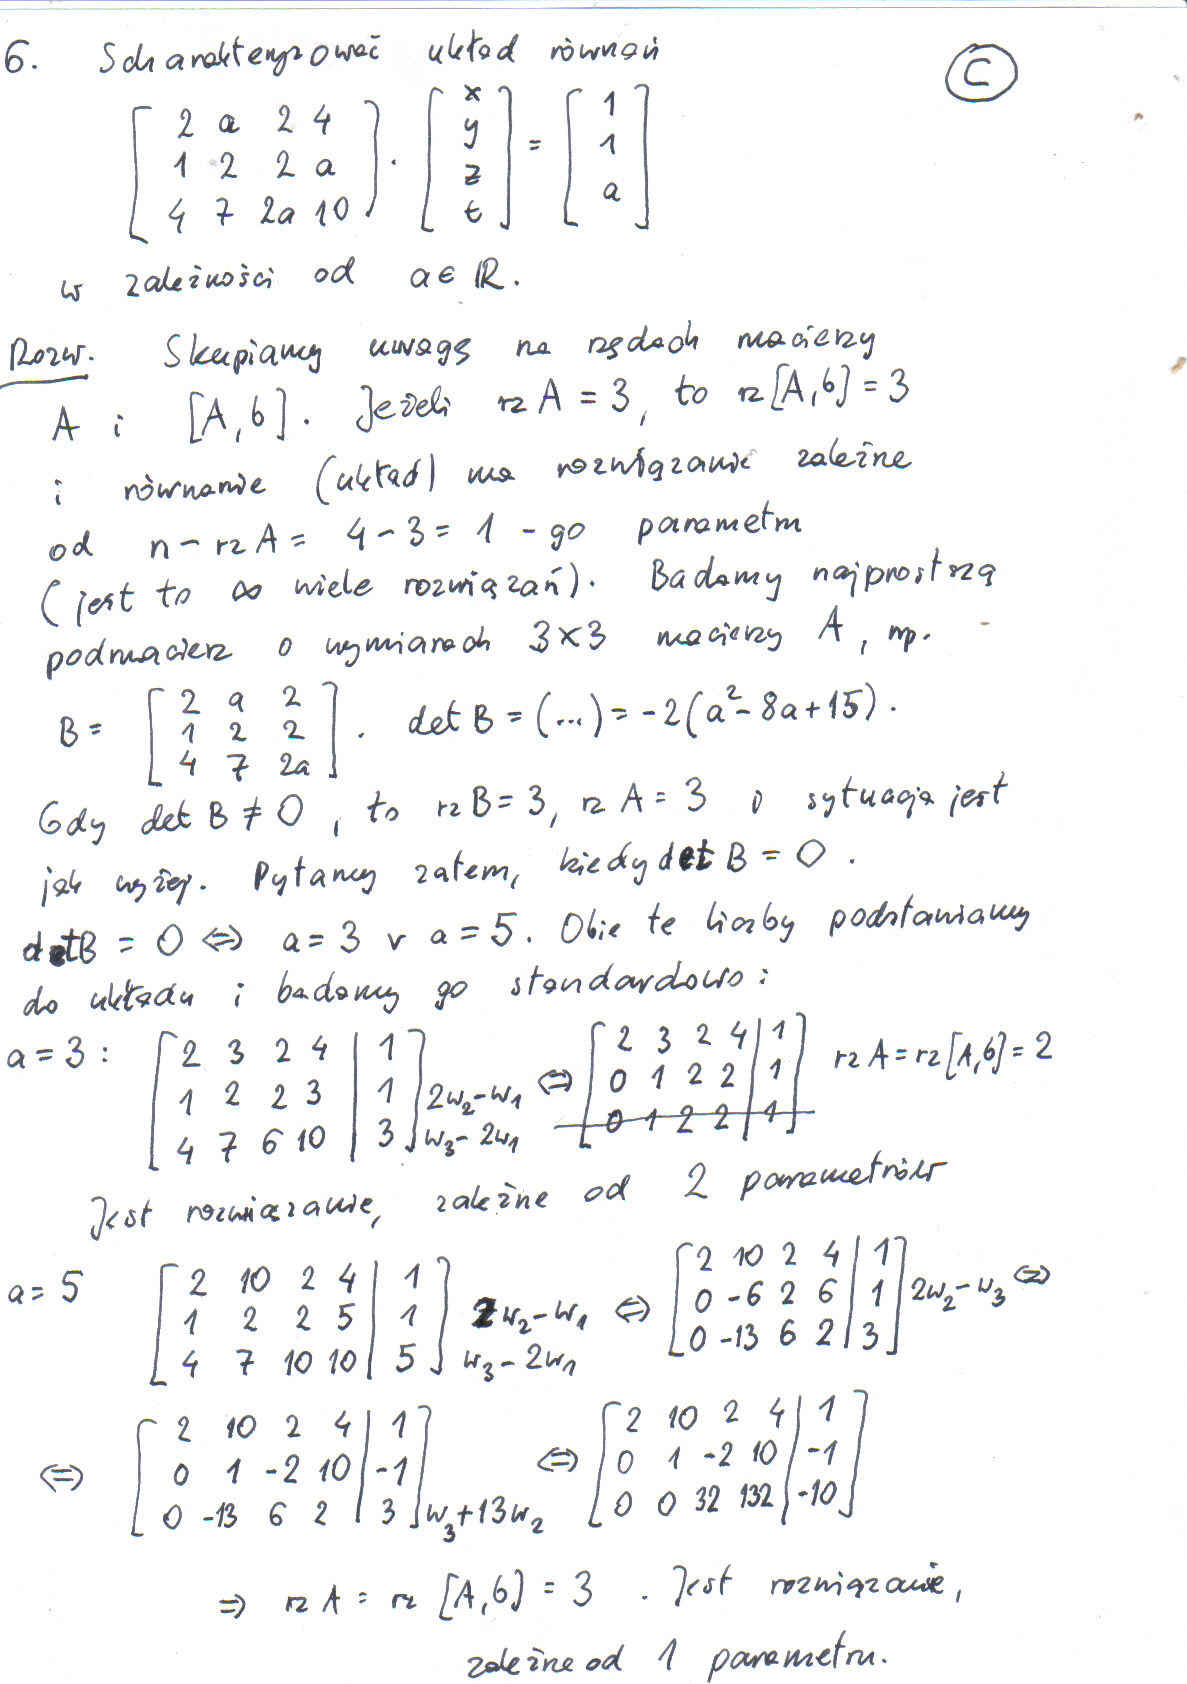 6. Scharakteryzować układ równań
C
[ 2 a 2 4 ; 1 2 2 a ; 4 7 2a 10 ] · [ x ; y ; z ; t ] = [ 1 ; 1 ; a ]
w zależności od a ∈ ℝ.
Rozw. Skupiamy uwagę na rzędach macierzy
A i [A,b]. Jeżeli rz A = 3, to rz [A,b] = 3
i równanie (układ) ma rozwiązanie zależne
od n - rz A = 4 - 3 = 1 - go parametru
(jest to ∞ wiele rozwiązań). Badamy najprostszą
podmacierz o wymiarach 3×3 macierzy A, np.
B = [ 2 a 2 ; 1 2 2 ; 4 7 2a ]. det B = (...) = -2(a² - 8a + 15).
Gdy det B ≠ 0, to rz B = 3, rz A = 3 i sytuacja jest
jak wyżej. Pytamy zatem, kiedy det B = 0.
det B = 0 ⇔ a = 3 v a = 5. Obie te liczby podstawiamy
do układu i badamy go standardowo:
a = 3: [ 2 3 2 4 | 1 ; 1 2 2 3 | 1 ; 4 7 6 10 | 3 ] 2w₂-w₁ w₃-2w₁ ⇔ [ 2 3 2 4 | 1 ; 0 1 2 2 | 1 ; 0 1 2 2 | 1 ] rz A = rz [A,b] = 2
Jest rozwiązanie, zależne od 2 parametrów
a = 5 [ 2 10 2 4 | 1 ; 1 2 2 5 | 1 ; 4 7 10 10 | 5 ] 2w₂-w₁ w₃-2w₁ ⇔ [ 2 10 2 4 | 1 ; 0 -6 2 6 | 1 ; 0 -13 6 2 | 3 ] 2w₂-w₃ ⇔
⇔ [ 2 10 2 4 | 1 ; 0 1 -2 10 | -1 ; 0 -13 6 2 | 3 ] w₃+13w₂ ⇔ [ 2 10 2 4 | 1 ; 0 1 -2 10 | -1 ; 0 0 32 132 | -10 ]
⇒ rz A = rz [A,b] = 3. Jest rozwiązanie,
zależne od 1 parametru.